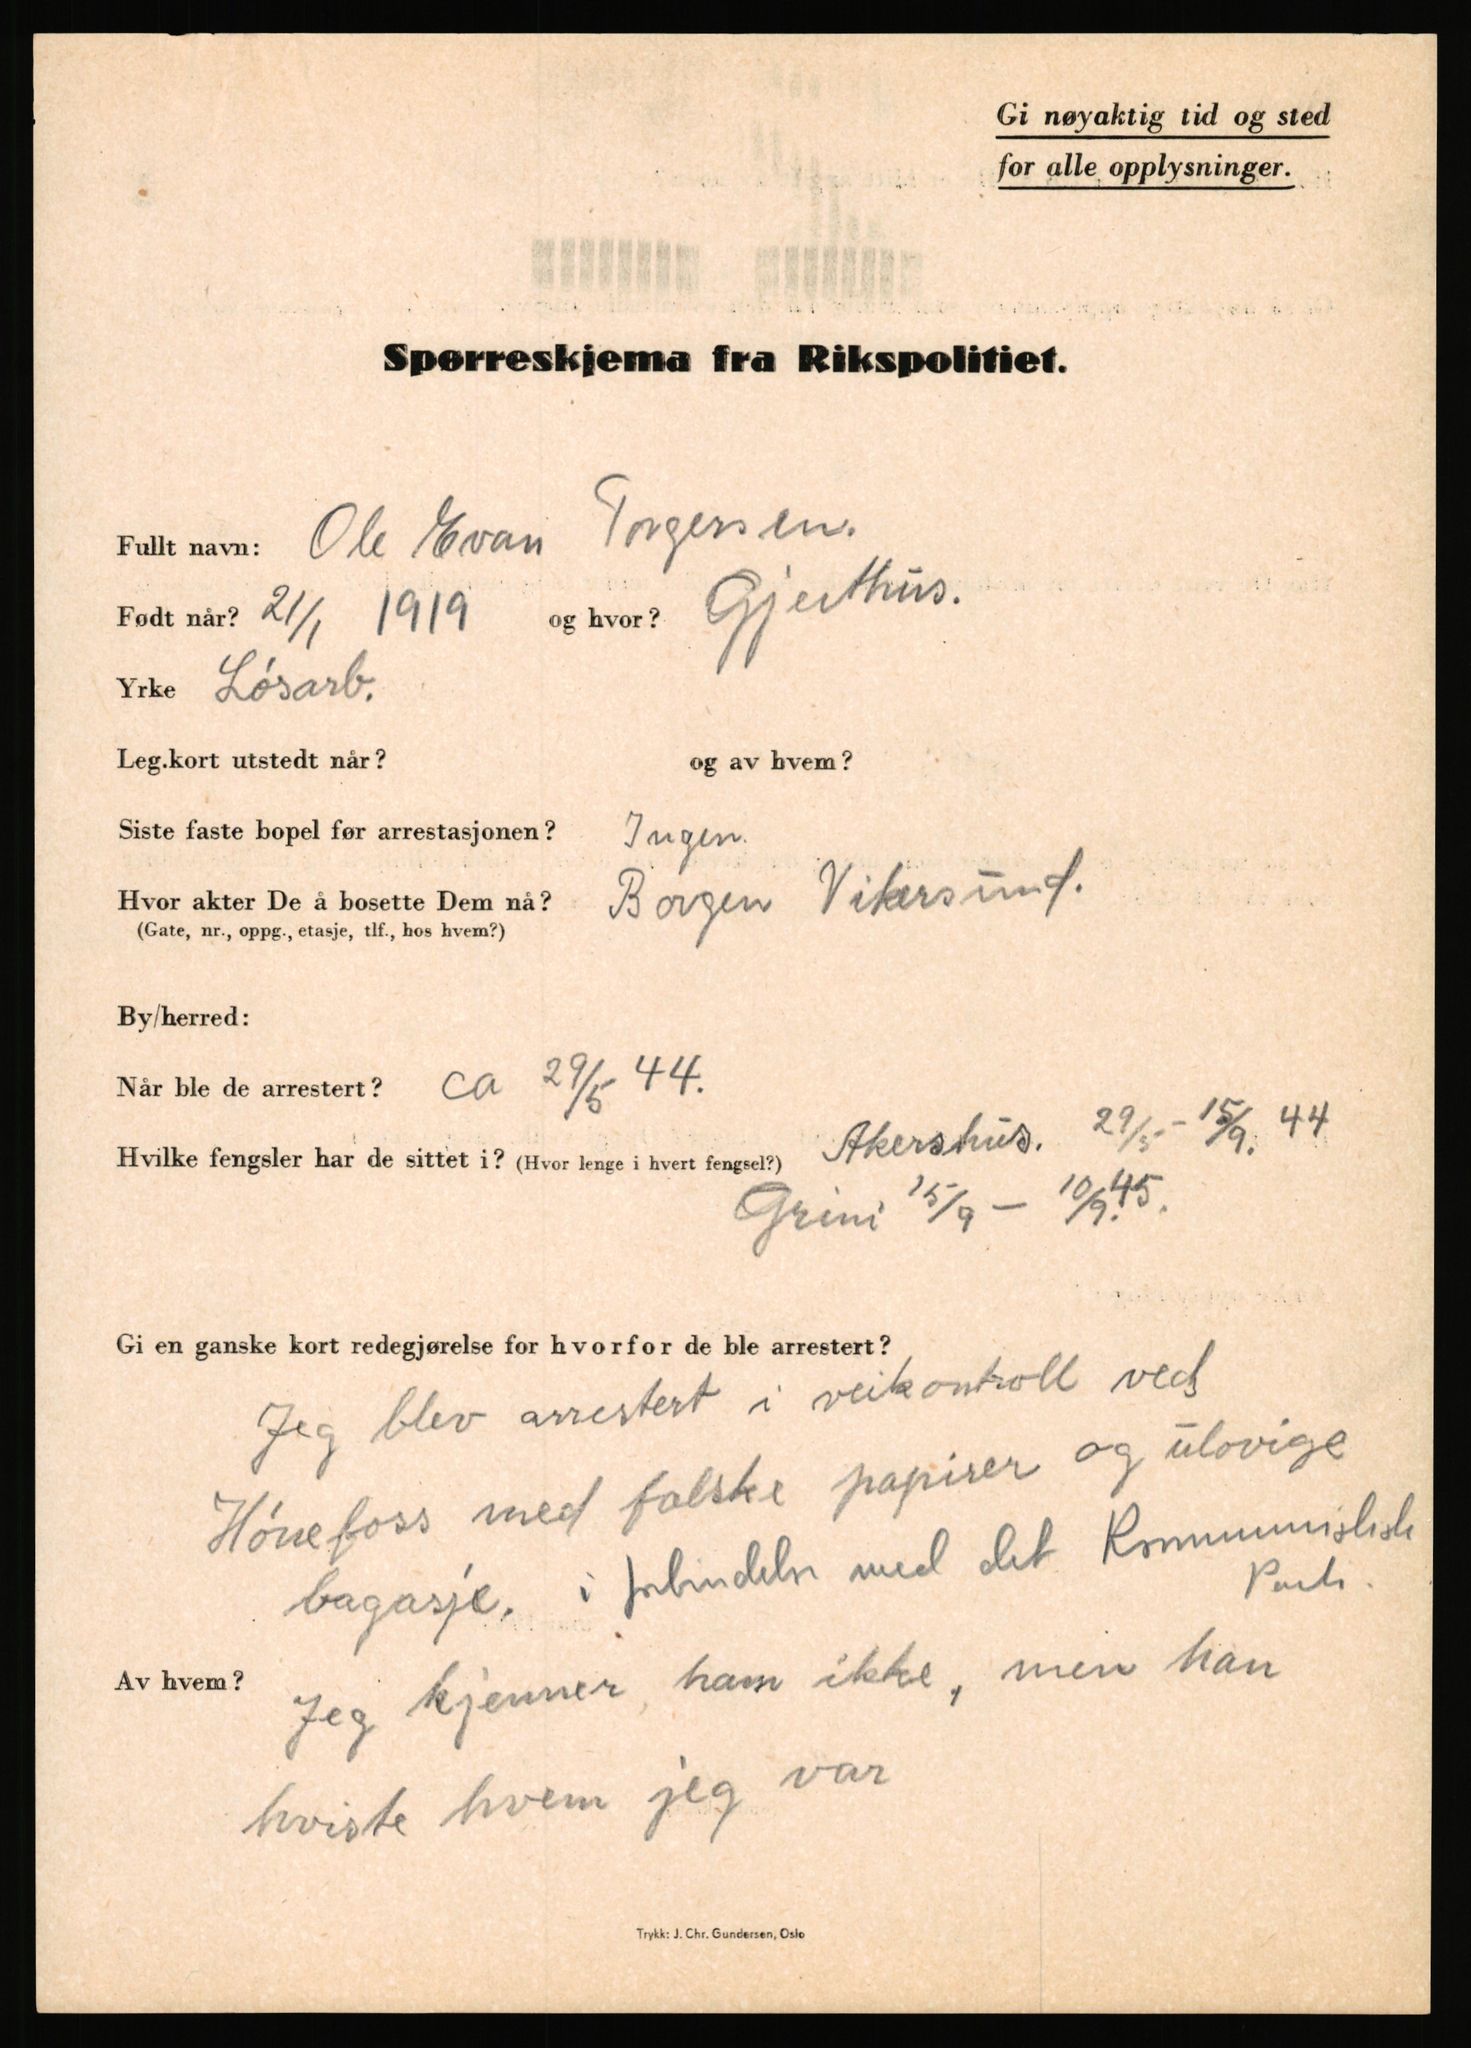 Gi nøyaktig tid og sted
for alle opplysninger.
Spørreskjema fra Rikspolitiet.
Fullt navn: Ole Evan Torgersen.
Født når? 21/1 1919 og hvor? Gjerthus.
Yrke Løsarb.
Leg.kort utstedt når? og av hvem?
Siste faste bopel før arrestasjonen? Ingen.
Hvor akter De å bosette Dem nå? Borgen Vikersund.
(Gate, nr., oppg., etasje, tlf., hos hvem?)
By/herred:
Når ble de arrestert? ca 29/5 44.
Hvilke fengsler har de sittet i? (Hvor lenge i hvert fengsel?) Akershus. 29/5 - 15/9. 44
Grini 15/9 — 10/9.45.
Gi en ganske kort redegjørelse for hvorfor de ble arrestert?
Jeg blev arrestert i veikontroll ved
Hónefoss med falske papirer og ulovige
bagasje. i forbindelse med det Kommunistisk
Parti.
Av hvem? Jeg kjenner ham ikke, men han
hviste hvem jeg var
Trykk: J. Chr. Gundersen, Oslo